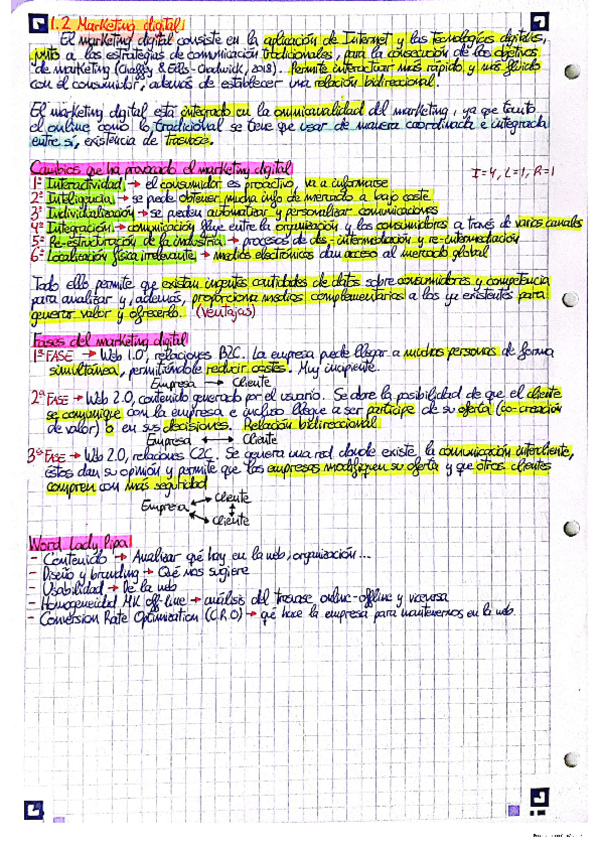 1.2 Marketing digital
El marketing digital consiste en la aplicación de Internet y las tecnologías digitales,
junto a las estrategias de comunicación tradicionales, para la consecución de los objetivos
de marketing (Chaffey & Ellis-Chadwick, 2018). Permite interactuar más rápido y más fluido
con el consumidor, además de establecer una relación bidireccional.
El marketing digital está integrado en la omnicanalidad del marketing, ya que tanto
el online como lo tradicional se tiene que usar de manera coordinada e integrada
entre sí, existencia de trasvase.
Cambios que ha provocado el marketing digital
I=4, L=1, R=1
1º Interactividad → el consumidor es proactivo, va a informarse
2º Inteligencia → se puede obtener mucha info de mercado a bajo coste
3º Individualización → se pueden automatizar y personalizar comunicaciones
4º Integración → comunicación fluye entre la organización y los consumidores a través de varios canales
5º Re-estructuración de la industria → procesos de des-intermediación y re-intermediación
6º Localización física irrelevante → medios electrónicos dan acceso al mercado global
Todo ello permite que existan ingentes cantidades de datos sobre consumidores y competencia
para analizar y, además, proporciona medios complementarios a los ya existentes para
generar valor y ofrecerlo. (Ventajas)
Fases del marketing digital
1ª FASE → Web 1.0, relaciones B2C. La empresa puede llegar a muchas personas de forma
simultánea, permitiéndole reducir costes. Muy incipiente.
Empresa → Cliente
2ª FASE → Web 2.0, contenido generado por el usuario. Se abre la posibilidad de que el cliente
se comunique con la empresa e incluso llegue a ser partícipe de su oferta (co-creación
de valor) o en sus decisiones. Relación bidireccional
Empresa ↔ Cliente
3ª FASE → Web 2.0, relaciones C2C. Se genera una red donde existe la comunicación intercliente,
éstos dan su opinión y permite que las empresas modifiquen su oferta y que otros clientes
compren con más seguridad
Cliente
Empresa
Cliente
Word Lady Pipa
- Contenido → Analizar qué hay en la web, organización...
- Diseño y branding → Qué nos sugiere
- Usabilidad → De la web
- Homogeneidad MK off-line → análisis del trasvase online-offline y viceversa
- Conversion Rate Optimization (CRO) → qué hace la empresa para mantenernos en la web.